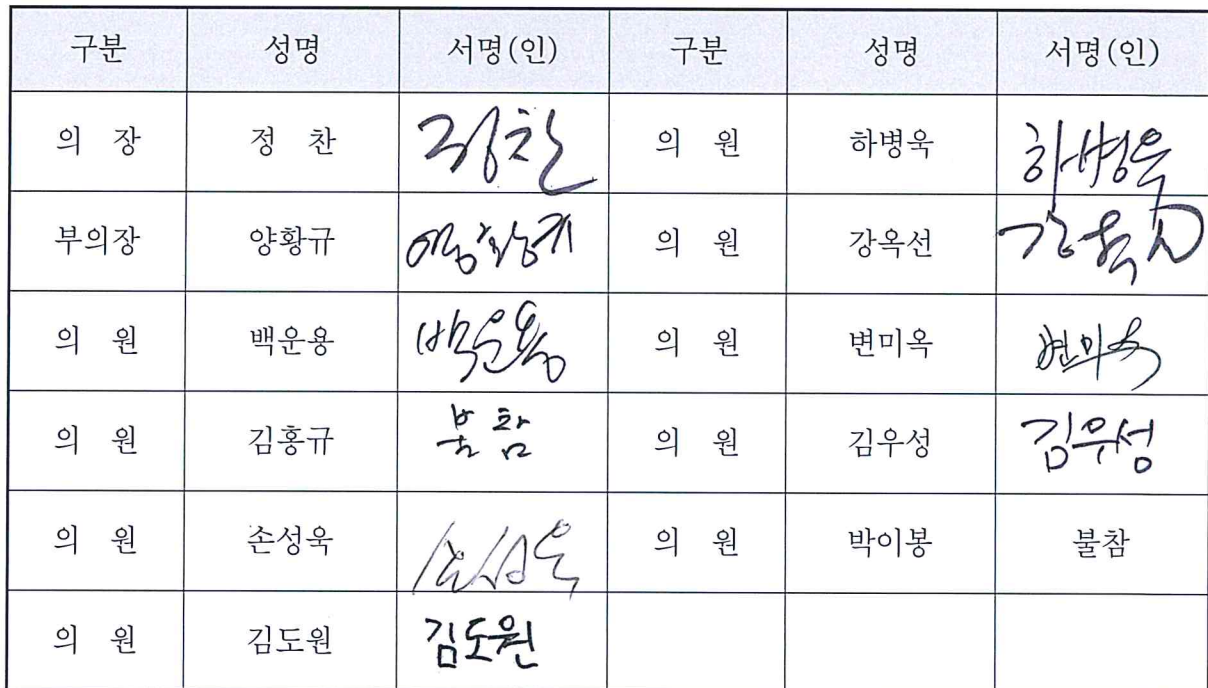 구분 성명 서명(인) 구분 성명 서명(인)
의 장 정 찬 정찬 의 원 하병욱 하병욱
부의장 양황규 양황규 의 원 강옥선 강옥선
의 원 백운용 백운용 의 원 변미옥 변미옥
의 원 김홍규 불참 의 원 김우성 김우성
의 원 손성욱 손성욱 의 원 박이봉 불참
의 원 김도원 김도원